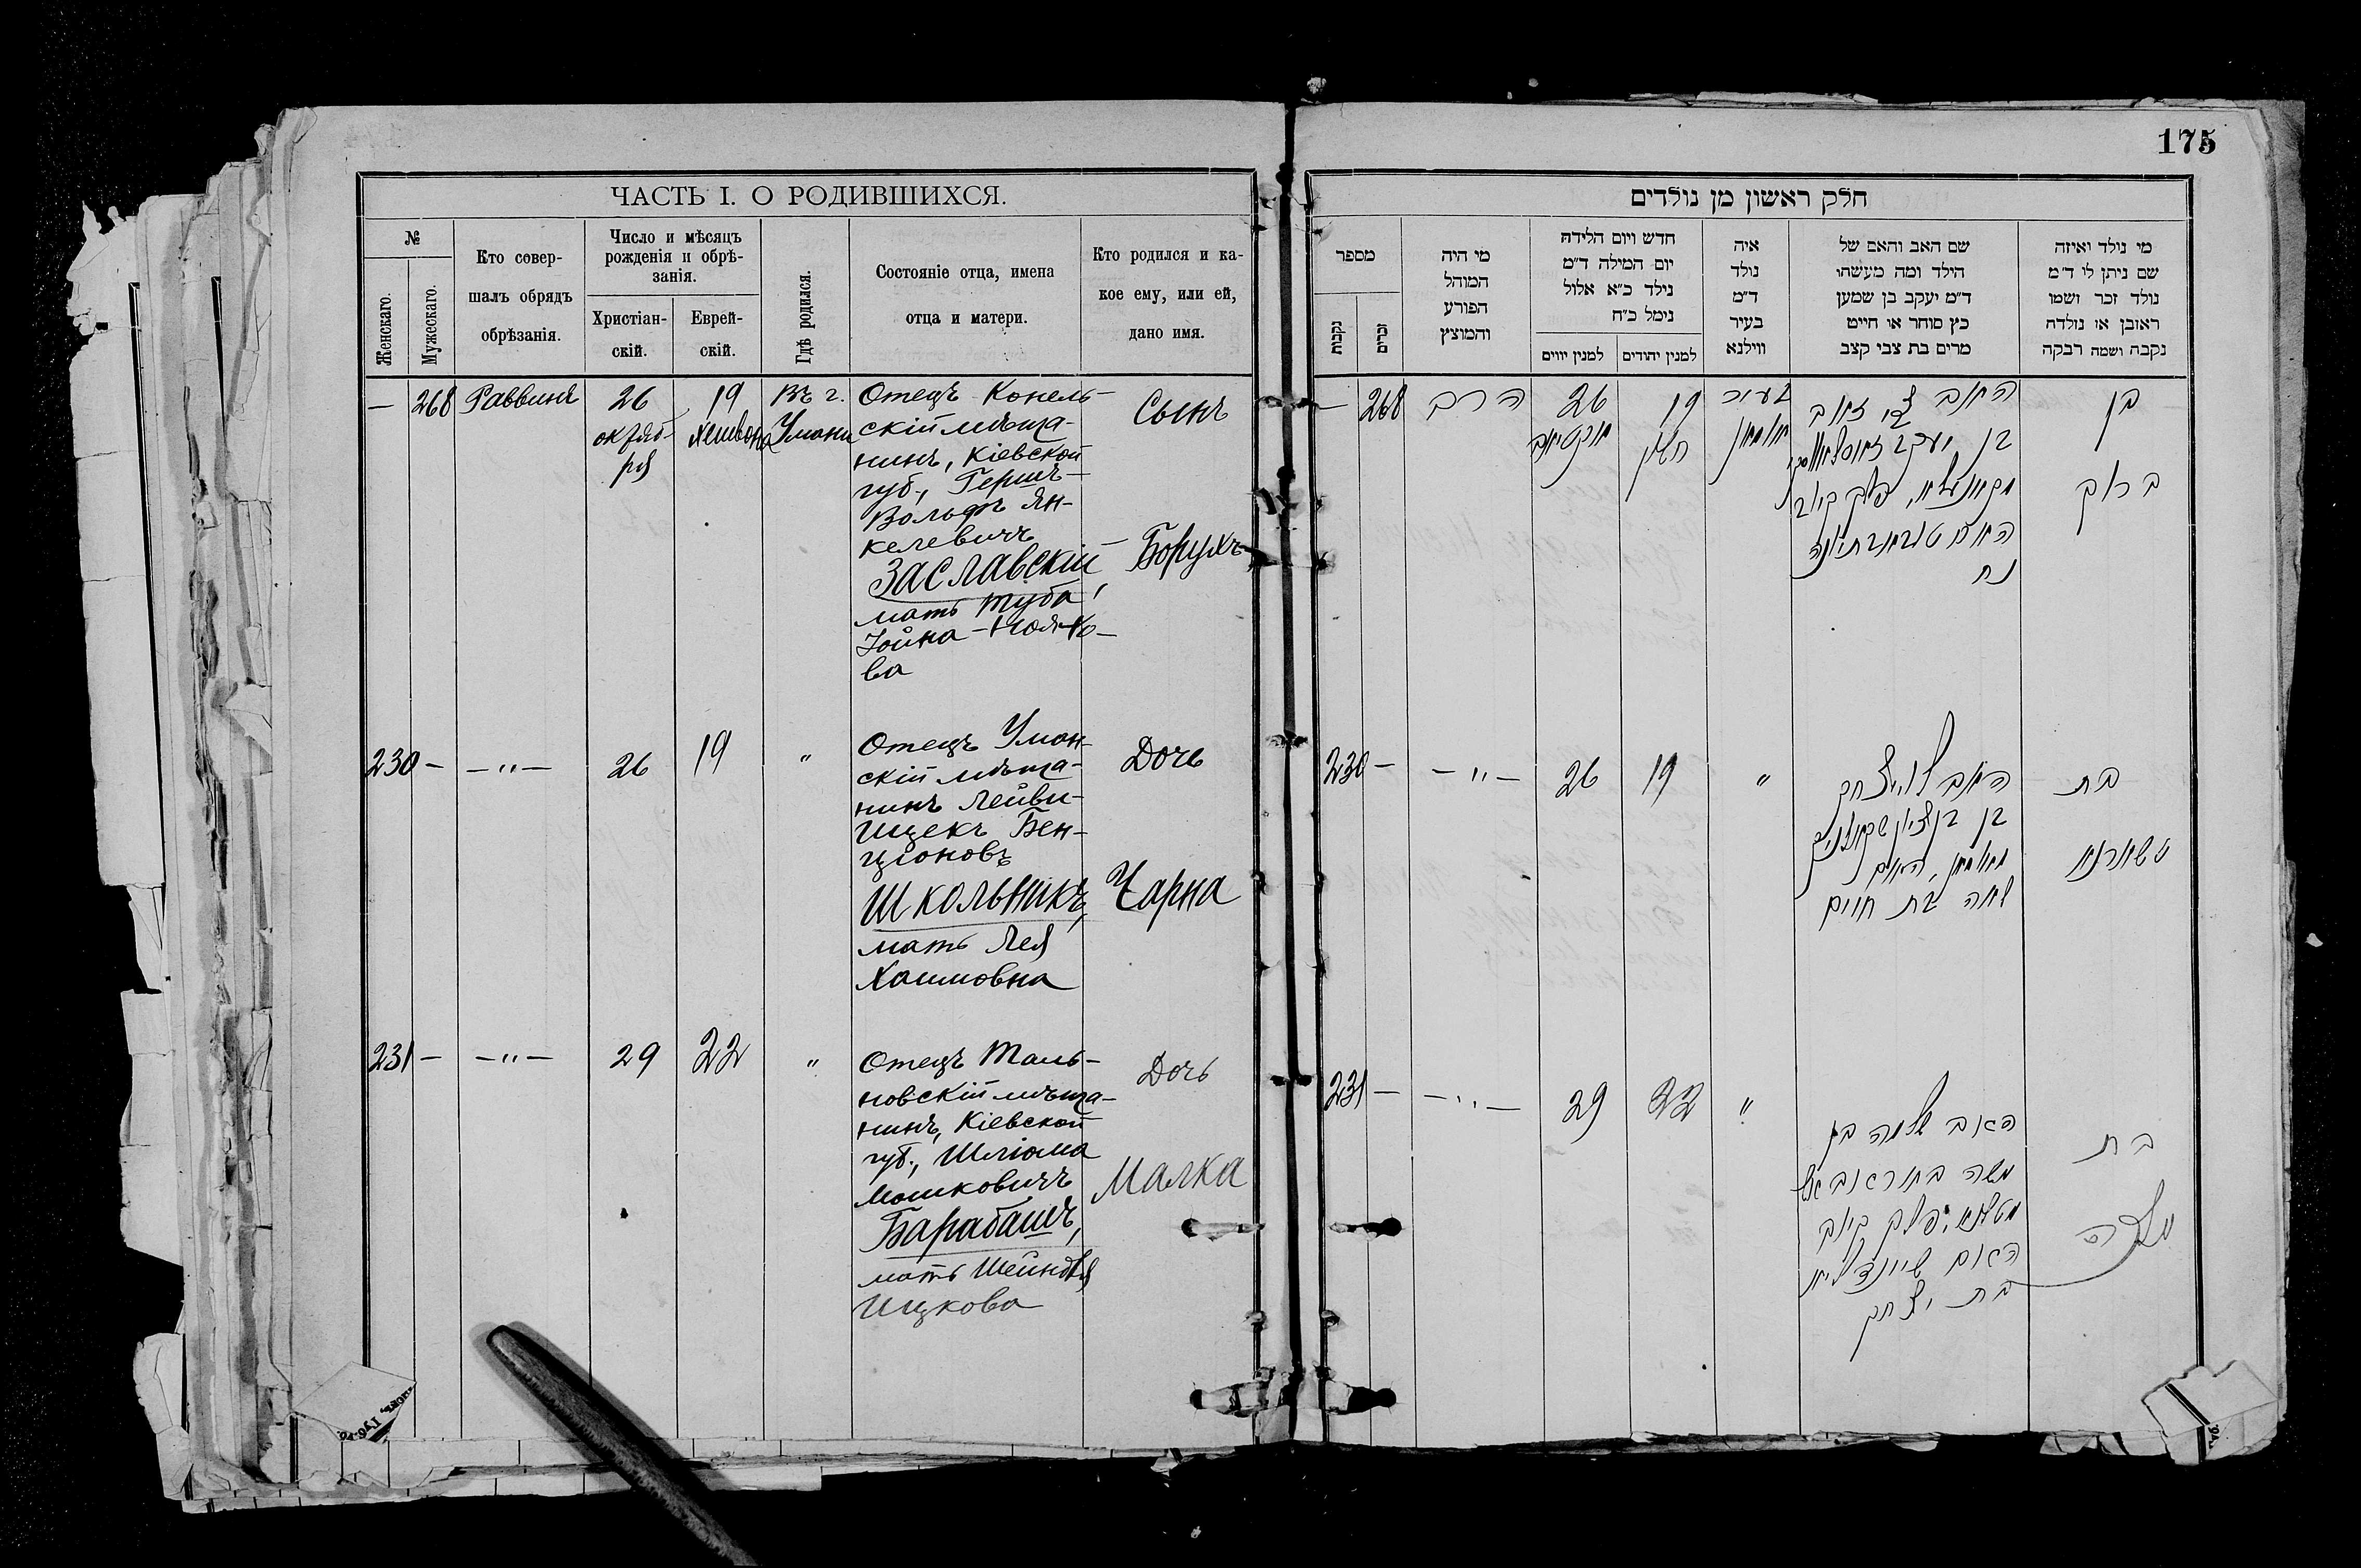 ЧАСТЬ I. О РОДИВШИХСЯ.
№
Женскаго.
Мужескаго.
Кто совер-
шалъ обрядъ
обрѣзанія.
Число и мѣсяцъ
рожденія и обрѣ-
занія.
Христіан-
скій.
Еврей-
скій.
Гдѣ родился.
Состояніе отца, имена
отца и матери.
Кто родился и ка-
кое ему, или ей,
дано имя.
— 268 Раввинъ
26
октяб-
ря
19
Хешвона
Въ г.
Умани
Отецъ Конель-
скій мѣща-
нинъ, Кіевской
губ., Гершъ-
Вольфъ Ян-
келевичъ
Заславскій,
мать Туба
Іойна-Нояхо-
ва
Сынъ
Борухъ
230 — —"— 26 19 "
Отецъ Уман-
скій мѣща-
нинъ Лейви-
Ицекъ Бен-
ціоновъ
Школьникъ,
мать Лея
Хаимовна
Дочь
Чарна
231 — —"— 29 22 "
Отецъ Таль-
новскій мѣща-
нинъ, Кіевской
губ., Шліома
Мошковичъ
Барабашъ,
мать Шейндля
Ицкова
Дочь
Малка
175
חלק ראשון מן נולדים
מספר
נקבות
זכרים
מי היה
המוהל
הפורע
והמוצץ
חדש ויום הלידה
יום המילה ד"מ
נילד כ"א אלול
נימל כ"ח
למנין יווים
למנין יהודים
איה
נולד
ד"מ
בעיר
ווילנא
שם האב והאם של
הילד ומה מעשהו
ד"מ יעקב בן שמען
כץ סוחר או חייט
מרים בת צבי קצב
מי נולד ואיזה
שם ניתן לי ד"מ
נולד זכר ושמו
ראובן או נולדה
נקבה ושמה רבקה
— 268 הרב
26
אקטיאב
19
חשון
בעיר
אומאן
האב צבי זאב
בן יעקב זאסלאווסקי
פלך קיוב
האם
נח
בן
ברוך
230 — —"— 26 19 "
האב לוי יצחק
בן בן ציון שקאלניק
מאומאן, האם
לאה בת חיים
בת
טשארנא
231 — —"— 29 22 "
האב שלמה בן
משה באראבאש
מטאלנא, פלך קיוב
האם שיינדליא
בת יצחק
בת
מלכה